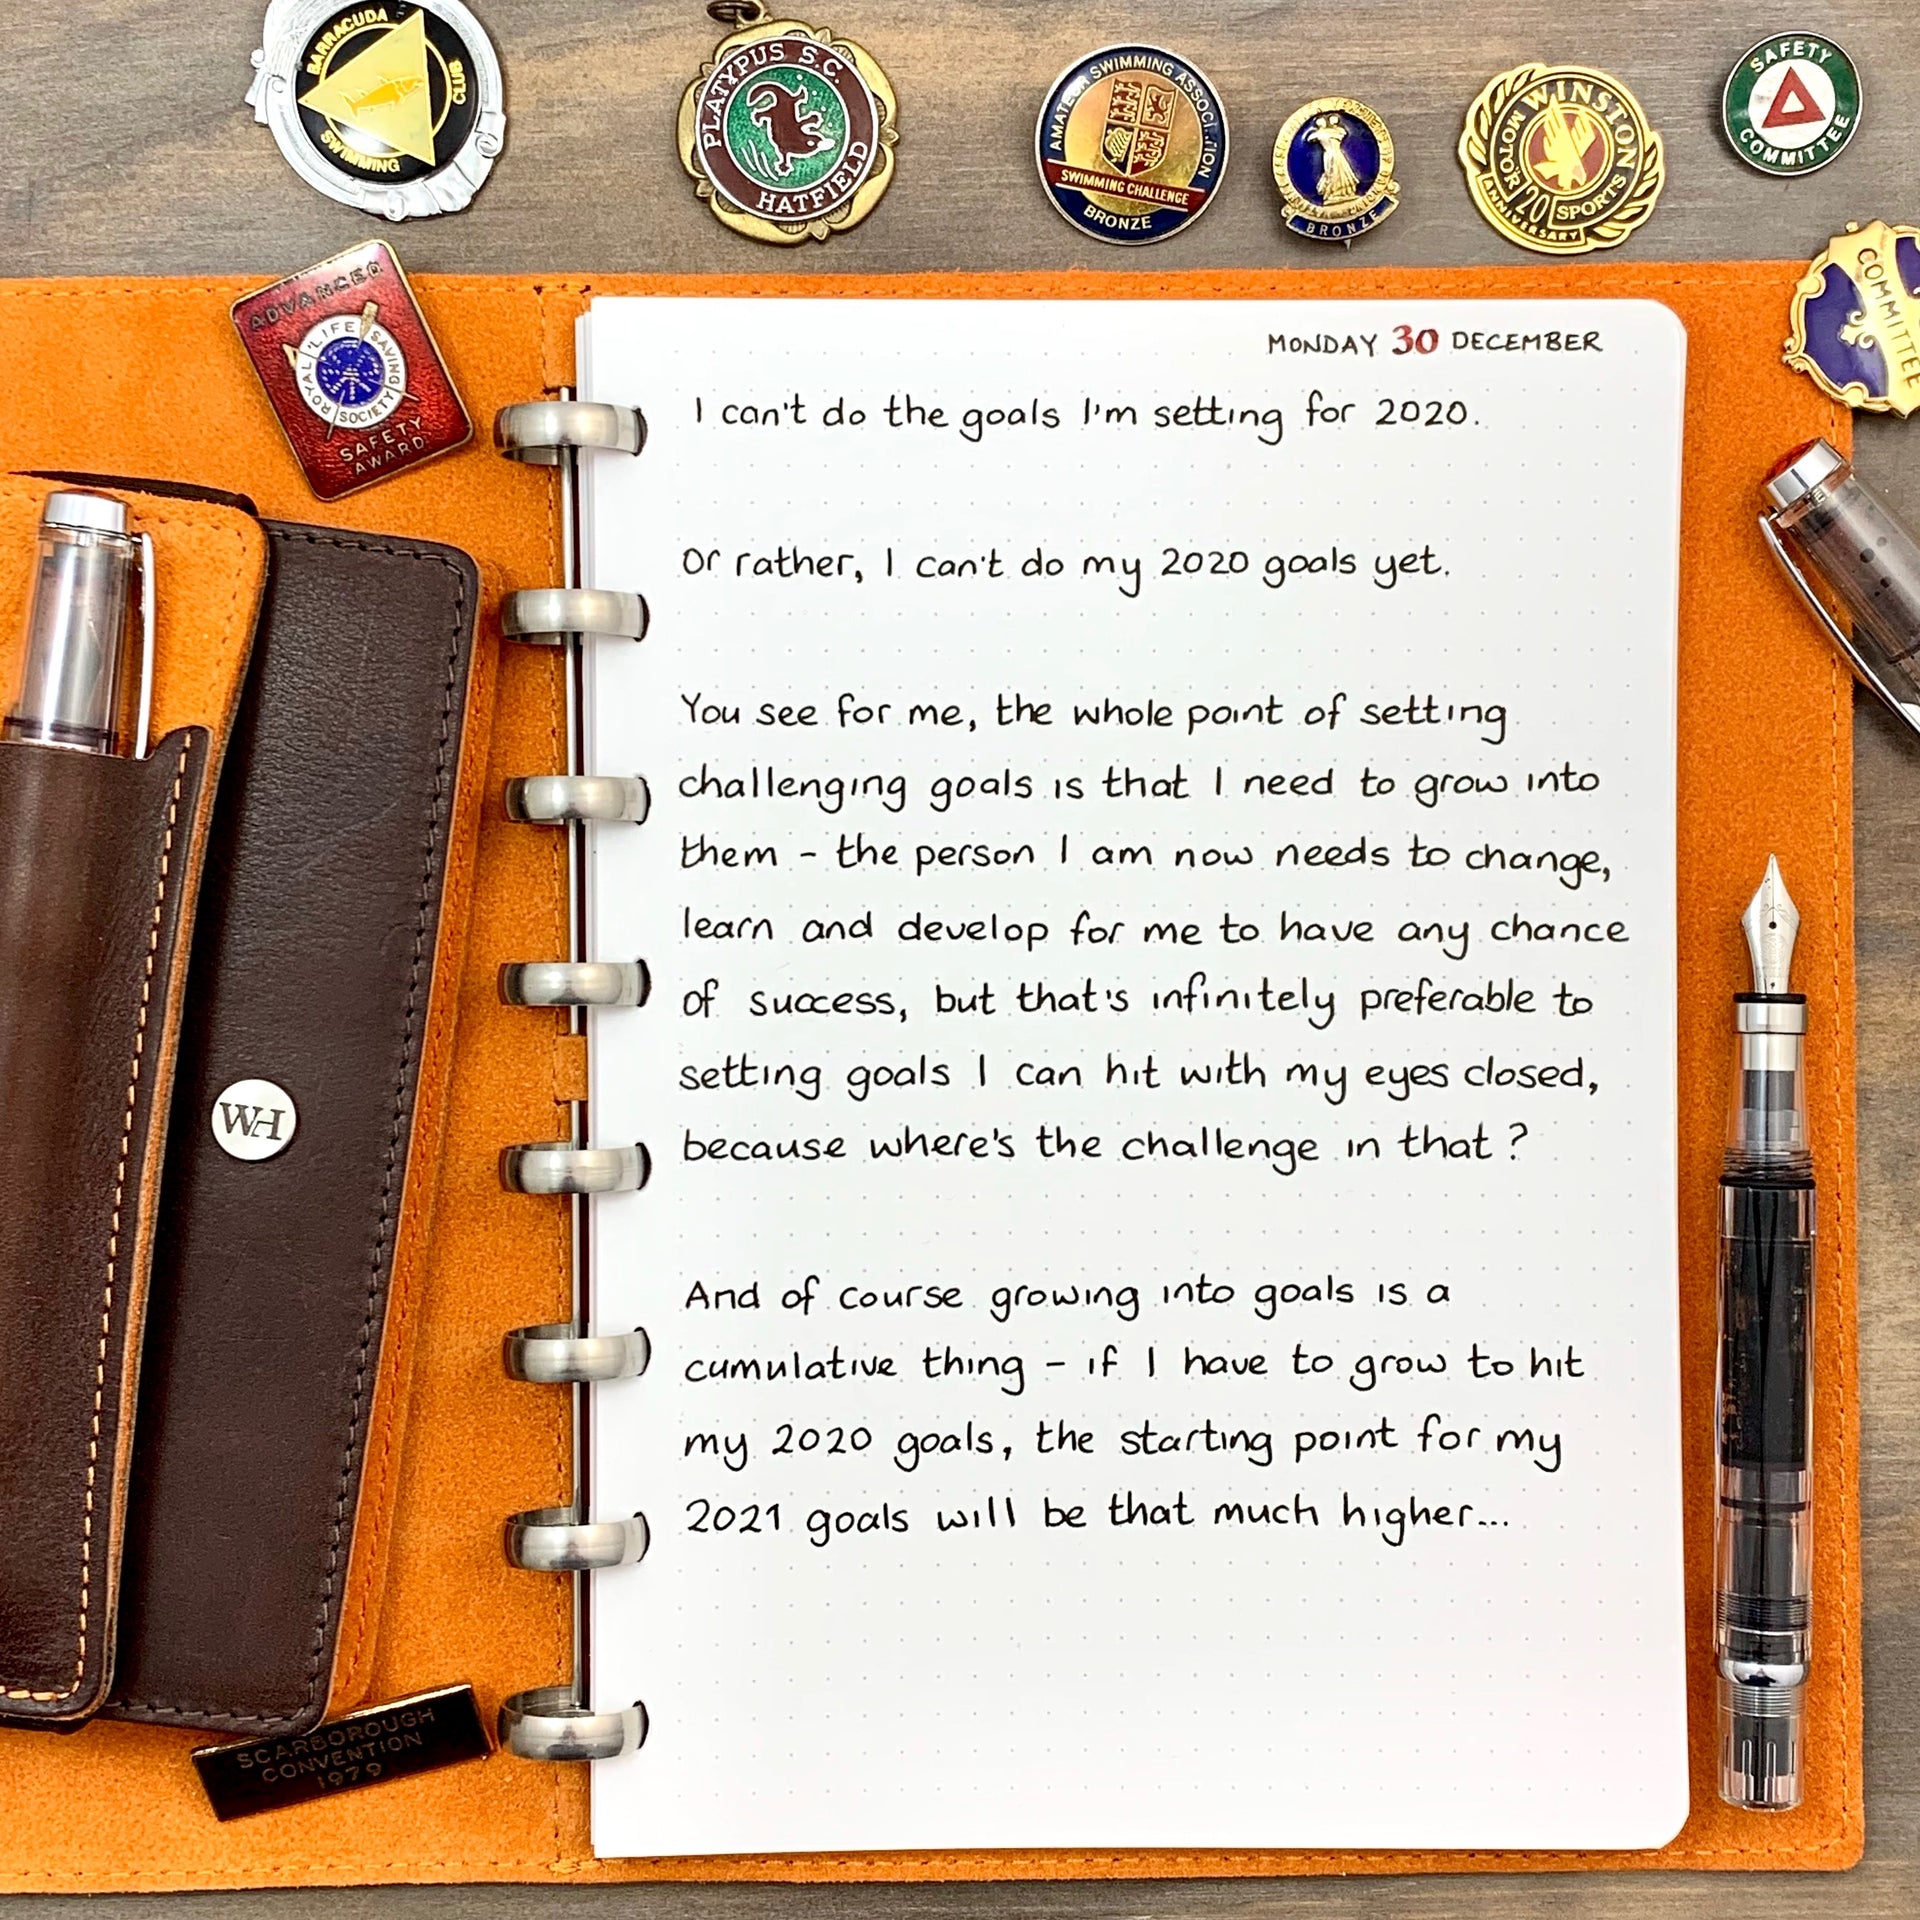 BARRACUDA
SWIMMING
CLUB
PLATYPUS S.C.
HATFIELD
AMATEUR SWIMMING
SWIMMING CHALLENGE
BRONZE
BRONZE
WINSTON
MOTOR SPORTS
20
ANNIVERSARY
SAFETY
COMMITTEE
COMMITTEE
ADVANCED
ROYAL LIFE SAVING
SOCIETY
SAFETY
AWARD
WH
SCARBOROUGH
CONVENTION
1979
MONDAY 30 DECEMBER
I can't do the goals I'm setting for 2020.
Or rather, I can't do my 2020 goals yet.
You see for me, the whole point of setting
challenging goals is that I need to grow into
them - the person I am now needs to change,
learn and develop for me to have any chance
of success, but that's infinitely preferable to
setting goals I can hit with my eyes closed,
because where's the challenge in that?
And of course growing into goals is a
cumulative thing - if I have to grow to hit
my 2020 goals, the starting point for my
2021 goals will be that much higher...